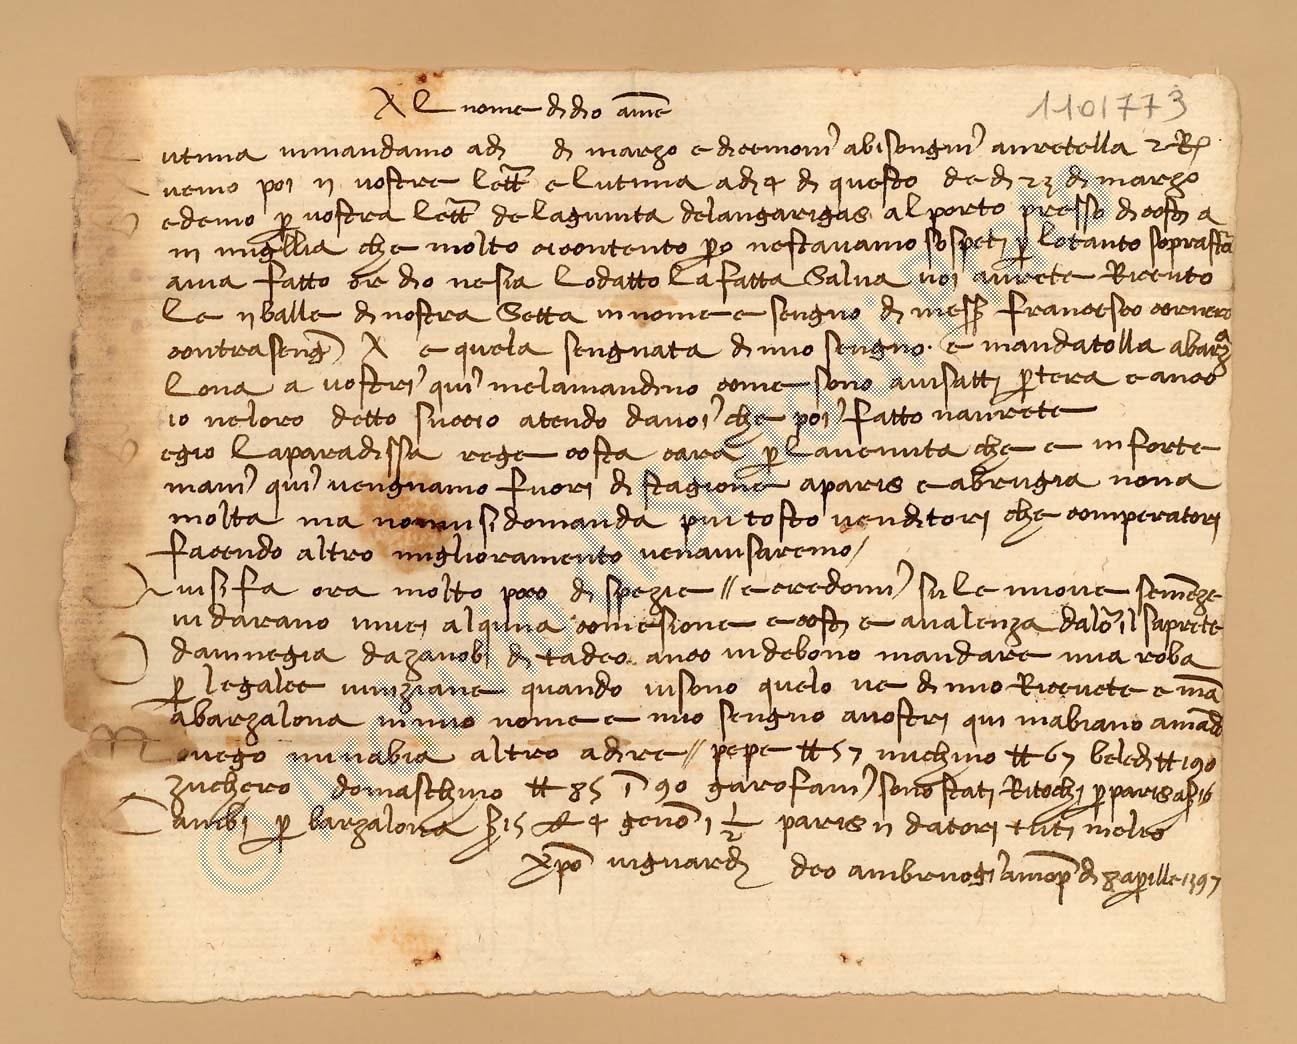 Al nome di dio ame
1101773
utima vi mandamo a dì di marzo e diremovi a bisongni avretella R
vemo poi ii vostre lett e lutima a dì 4 di questo de dì 23 di marzo
e demo per vostra lett de la gunita de langarigas al porto presso di costì a
iii migllia che molto ci contento però ne stavamo sospeti per lo tanto soprastà
avia fatto or e dio ne sia lodatto la fatta salva voi avrete Ricevto
le ii balle di nostra setta in nome e sengno di mess francesco cornero
contraseng X e quela sengnata di mio sengno e mandatolla a barz
lona a vostri qui me la mandino come sono avisatti per tera e anco
io ne loro detto sucio atendo da voi che poi fatto n avrete
e gio la paradissa rege costa cara per l avenuta che è in forte
mani qui vengnamo fuori di stagione a paris e a brugia nona
molta ma non vi si domanda piu tosto venditori che comperatori
facendo altro miglioramento ve n avisaremo
Qui si fa ora molto poco di spezie // e credomi su le nuove semeze
vi darano vivei alquna comesione e costì e a valenza da loro il saprete
da vinegia da zanobi di tadeo anco vi debono mandare mia roba
per le galee viniziane quando vi sono quelo ve di mio Ricevete e mã
a barzalona in mio nome e mio sengno a vostri qui m abiano a mad
Novego mi nabia altro a dire // pepe 57 michino 67 beledi 190
zuchero domaschino 85 in 90 garofani sono stati Ritochi per paris a s 16
Cambi per barzalona s 15 d 4 genova 1 1/2 paris ii datori tuti melro
xpo vi guardi deo ambruogi di 8 aprille 1397